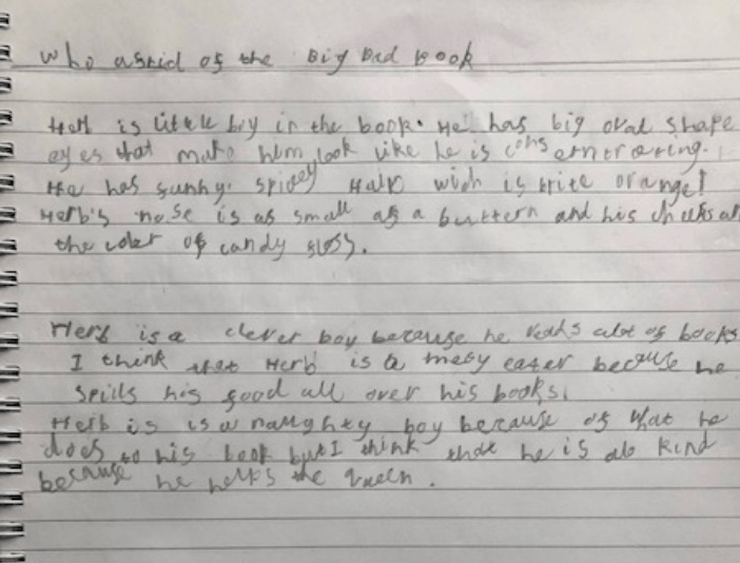 Who asraid of the Big Bad Book
Herb is little boy in the book. He has big oval shape
eyes that make him look like he is conserntraring.
He has sunny. spidey Hair wich is brite orange!
Herb's nose is as small as a buttern and his cheeks ar
the coler of candy sloss.
Herb is a clever boy because he reads alot of books
I think that Herb is a mesy eater because he
spills his food all over his books.
Herb is is a naughty boy because of what he
does to his book but I think that he is also kind
because he helps the queen.